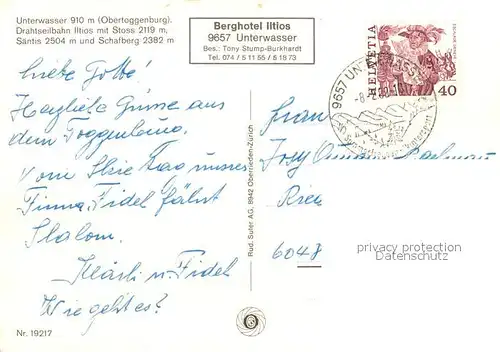 Unterwasser 910 m (Obertoggenburg).
Drahtseilbahn Iltios mit Stoss 2119 m,
Säntis 2504 m und Schafberg 2382 m
Berghotel Iltios
9657 Unterwasser
Bes.: Tony Stump-Burkhardt
Tel. 074 / 5 11 55 / 5 18 73
Liebe Gotte!
Herzliche Grüsse aus
dem Toggenburg.
Vom Skitag unserer
Firma. Fidel fährt
Slalom.
Märli u. Fidel
Wie geht es?
Nr. 19217
Rud. Suter AG, 8942 Oberrieden-Zürich
HELVETIA
40
9657 UNTERWASSER
Frau
Josy
6048
privacy protection
watermark